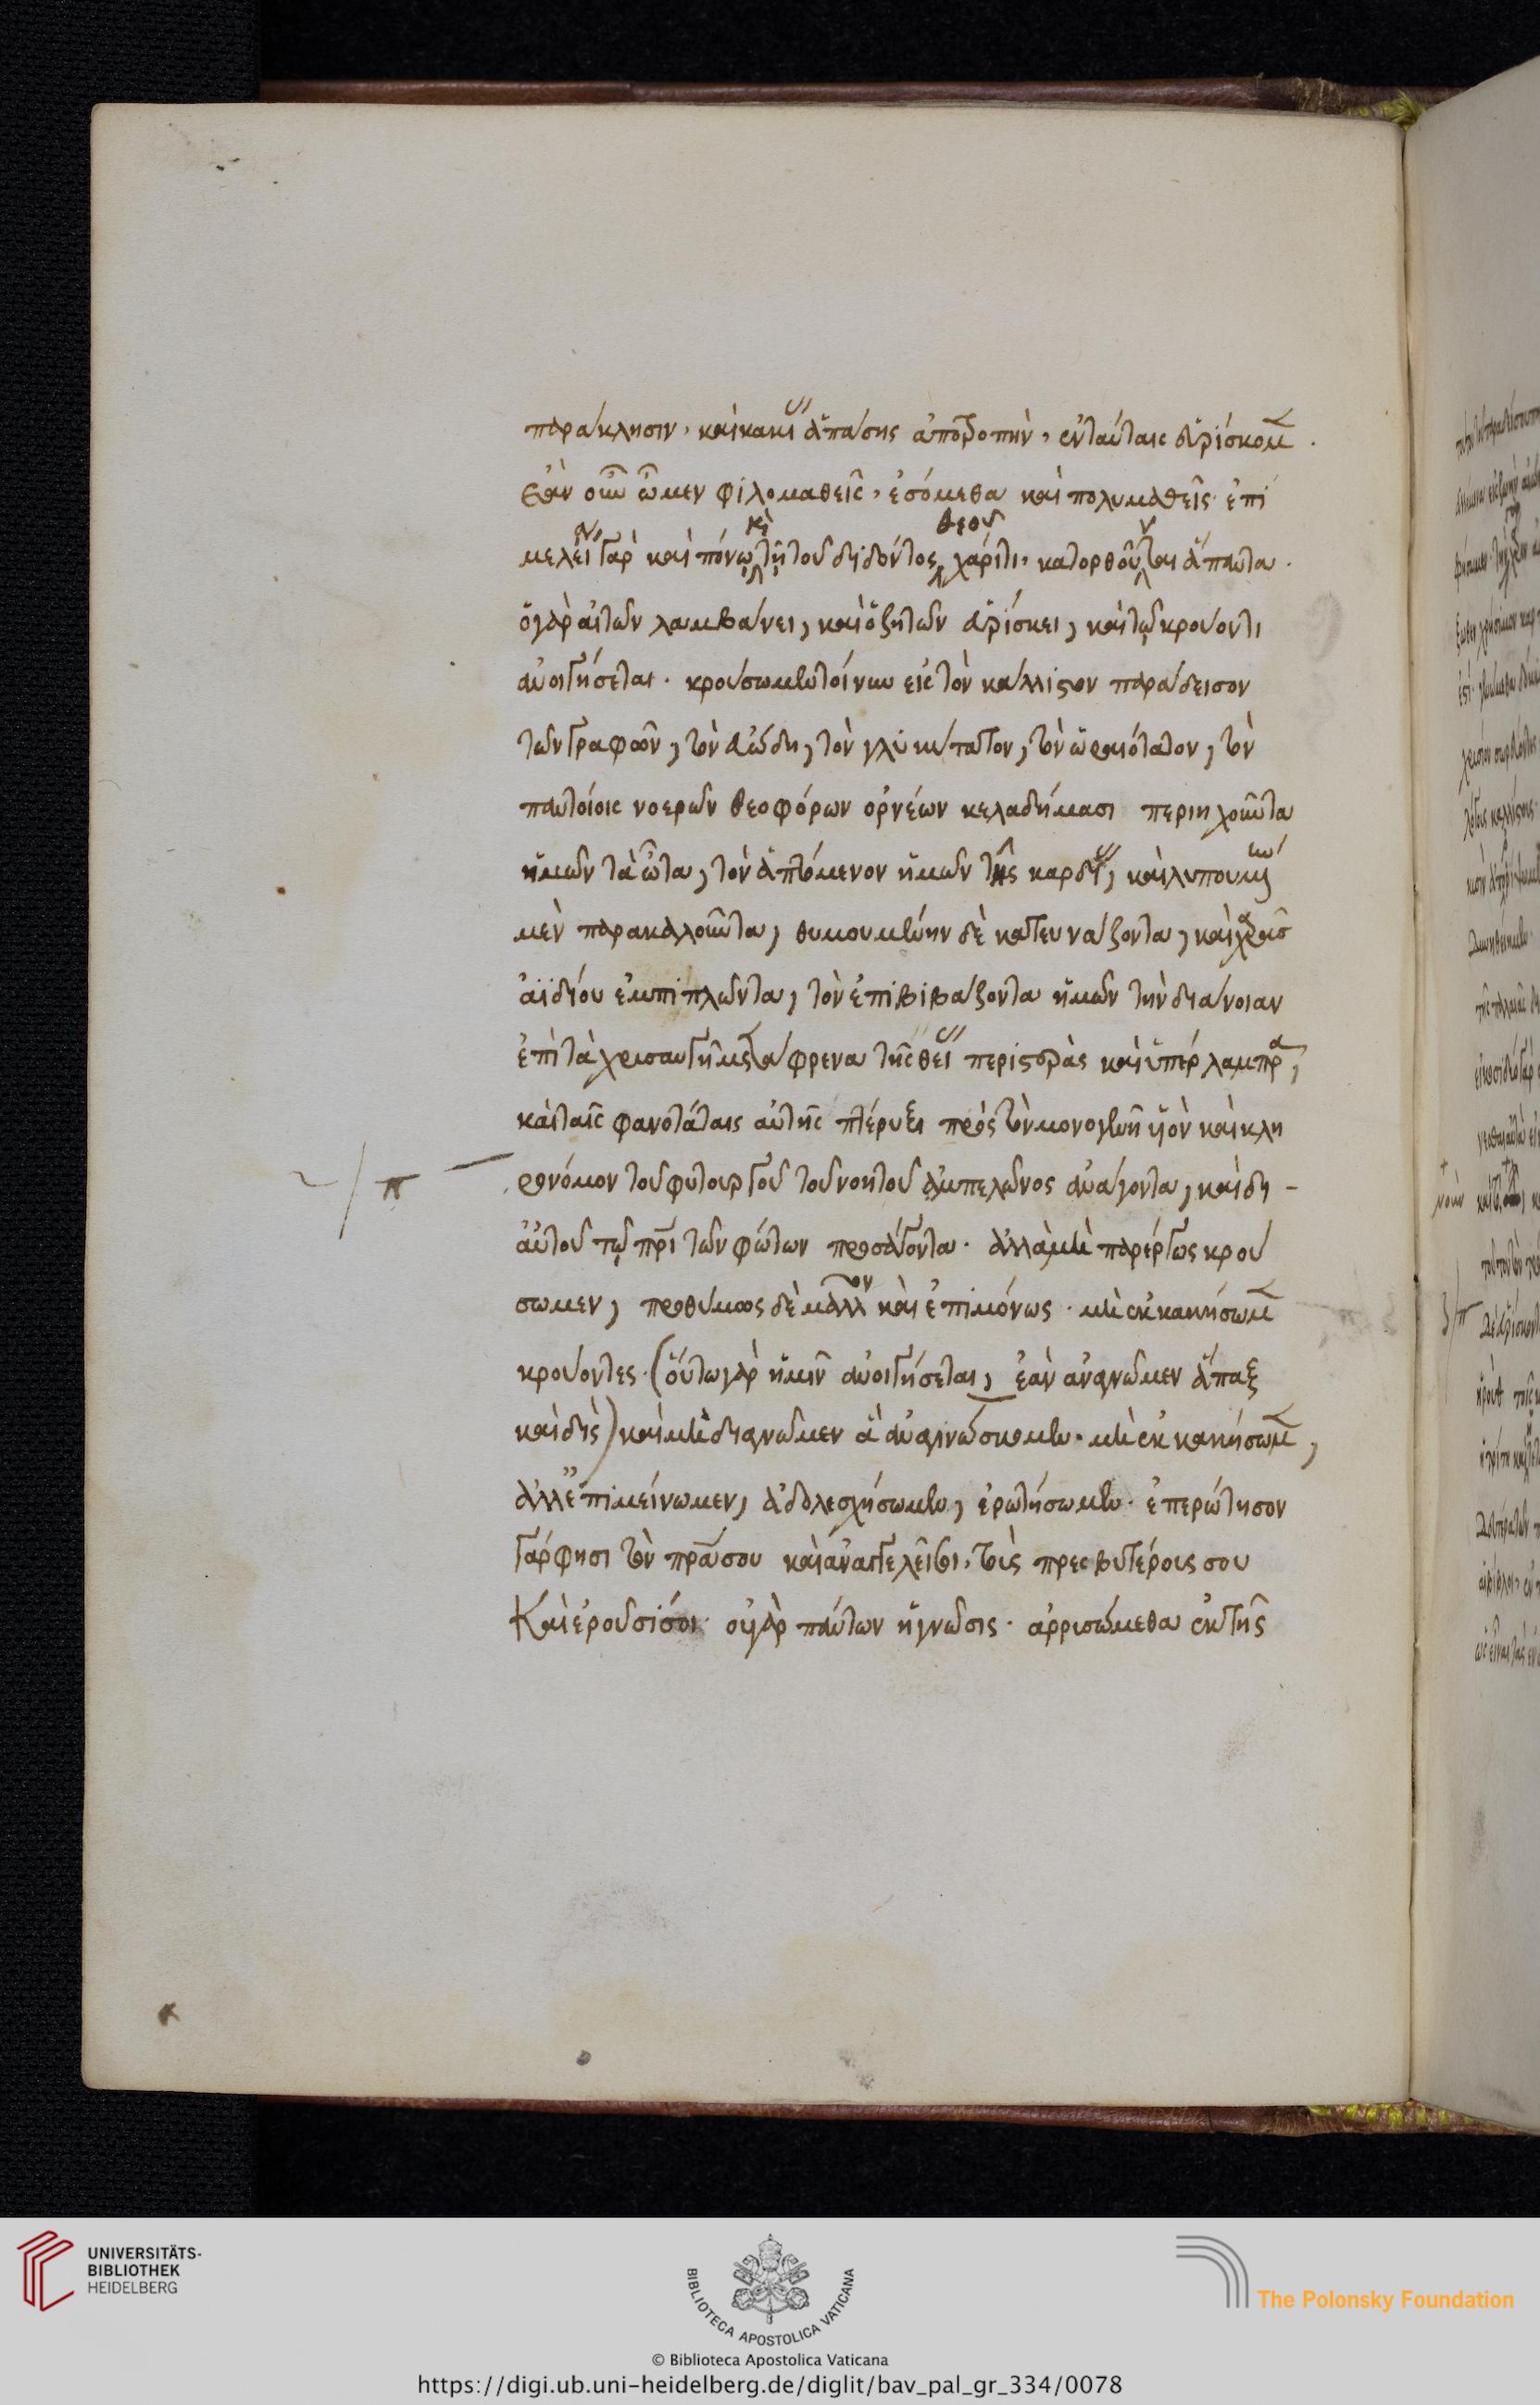 παράκλησιν, καὶ κακίας ἁπάσης ἀποτροπὴν, ἐνταύταις εὑρίσκομεν.
Ἐὰν οὖν ὦμεν φιλομαθεῖς, ἐσόμεθα καὶ πολυμαθεῖς· ἐπι
μελεία γὰρ καὶ πόνω καὶ τῆ τοῦ διδόντος θεοῦ χάριτι, κατορθοῦνται ἅπαντα.
ὁ γὰρ αἰτῶν λαμβάνει, καὶ ὁ ζητῶν εὑρίσκει, καὶ τῷ κρούοντι
ἀνοιγήσεται. κρούσωμεν τοίνυν εἰς τὸν κάλλιστον παράδεισον
τῶν γραφῶν, τὸν εὐώδη, τὸν γλυκύτατον, τὸν ὡραιότατον, τὸν
παντοίοις νοερῶν θεοφόρων ὀρνέων κελαδήμασι περιηχοῦντα
ἡμῶν τὰ ὦτα, τὸν ἁπτόμενον ἡμῶν τῆς καρδίας, καὶ λυπουμένην
μὲν παρακαλοῦντα, θυμουμένην δὲ κατευνάζοντα, καὶ χαρᾶς
ἀϊδίου ἐμπιπλῶντα, τὸν ἐπιβιβάζοντα ἡμῶν τὴν διάνοιαν
ἐπὶ τὰ χρυσαυγῆ μετάφρενα τῆς θείας περιστερᾶς καὶ ὑπέρλαμπρα,
καὶ ταῖς φανοτάταις αὐτῆς πτέρυξι πρὸς τὸν μονογενῆ υἱὸν καὶ κλη
ρονόμον τοῦ φυτουργοῦ τοῦ νοητοῦ ἀμπελῶνος ἀνάγοντα, καὶ δι-
αὐτοῦ τῷ πρὶ τῶν φώτων προσάγοντα. ἀλλὰ μὴ παρέργως κρού
σωμεν, προθύμως δὲ μᾶλλον καὶ ἐπιμόνως. μὴ ἐκκακήσωμεν
κρούοντες. (οὕτω γὰρ ἡμῖν ἀνοιγήσεται, ἐὰν ἀναγνῶμεν ἅπαξ
καὶ δὶς) καὶ μὴ διαγνῶμεν ἃ ἀναγινώσκομεν. μὴ ἐκκακήσωμεν,
ἀλλ' ἐπιμείνωμεν, ἀδολεσχήσωμεν, ἐρωτήσωμεν. ἐπερώτησον
γάρ φησι τὸν πρα σου καὶ ἀναγγελεῖ σοι, τοὺς πρεσβυτέρους σου
Καὶ ἐροῦσί σοι. οὐ γὰρ πάντων ἡ γνῶσις. ἀρρισώμεθα ἐκ τῆς
UNIVERSITÄTS-
BIBLIOTHEK
HEIDELBERG
BIBLIOTECA APOSTOLICA VATICANA
The Polonsky Foundation
© Biblioteca Apostolica Vaticana
https://digi.ub.uni-heidelberg.de/diglit/bav_pal_gr_334/0078